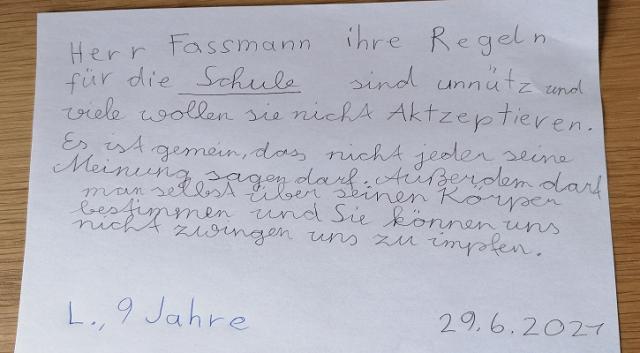 Herr Fassmann ihre Regeln
für die Schule sind unnütz und
viele wollen sie nicht Aktzeptieren.
Es ist gemein, das nicht jeder seine
Meinung sagen darf. Außerdem darf
man selbst über seinen Körper
bestimmen und Sie können uns
nicht zwingen uns zu impfen.
L., 9 Jahre
29.6.2021